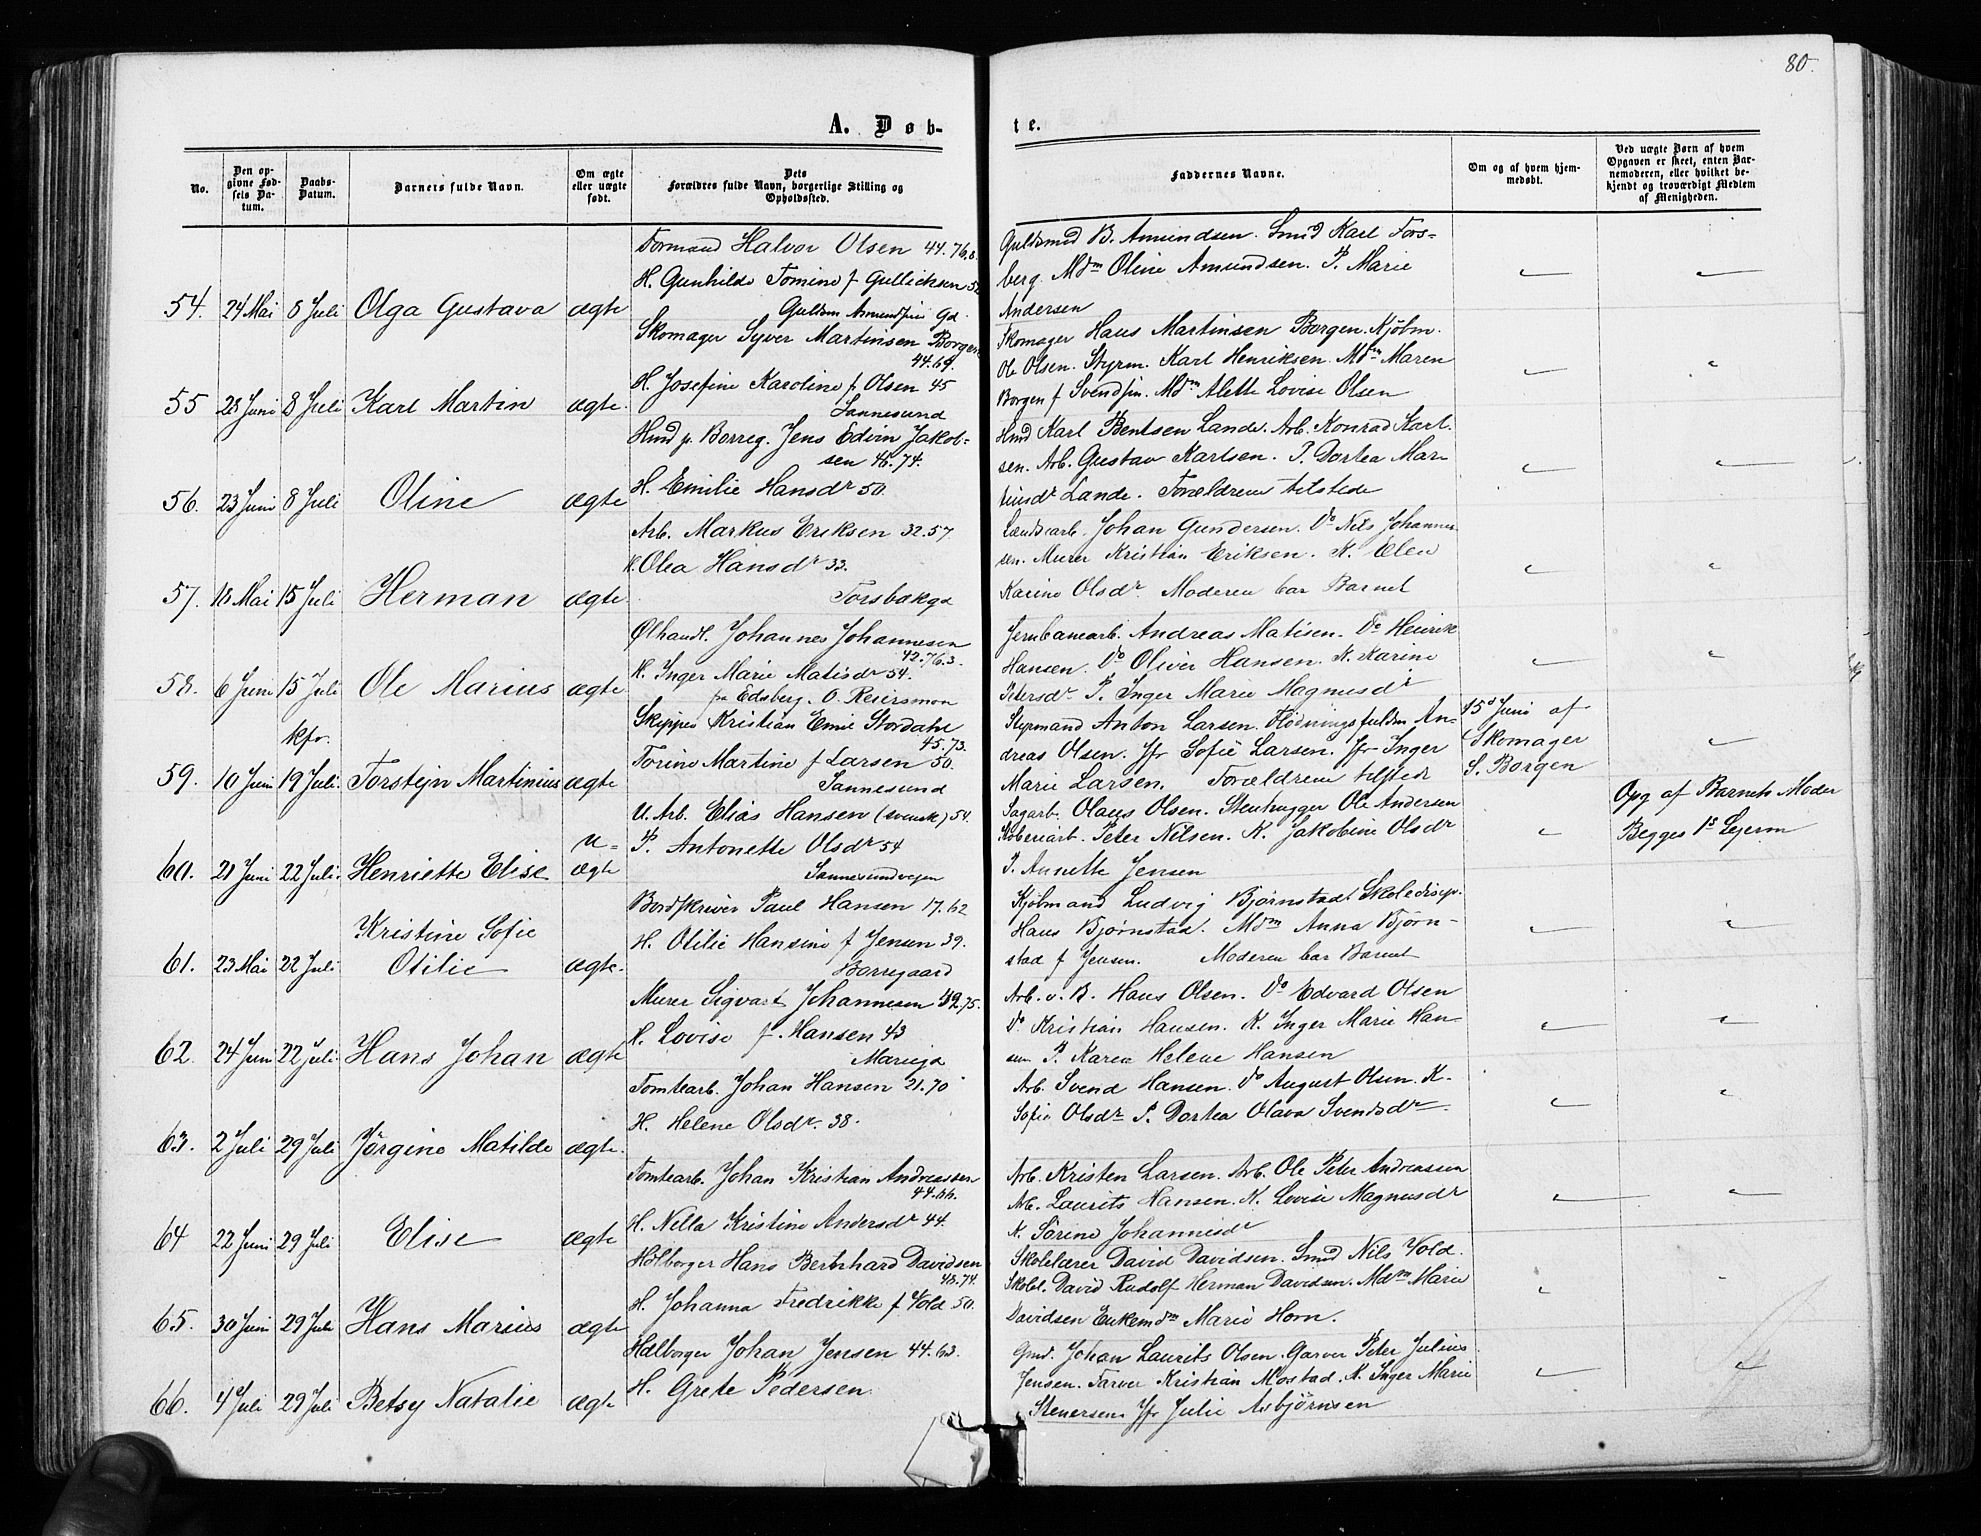 80.
A. Døb-
te.
No.
Den op-
givne Fød-
sels Da-
tum.
Daabs-
Datum.
Barnets fulde Navn.
Om ægte
eller uægte
født.
Dets
Forældres fulde Navn, borgerlige Stilling og
Opholdssted.
Faddernes Navne.
Om og af hvem hjem-
medøbt.
Ved uægte Børn af hvem
Opgaven er skeet, enten Bar-
nemoderen, eller hvilket be-
kjendt og troværdigt Medlem
af Menigheden.
54. 24 Mai 8 Juli Olga Gustava ægte
Formand Halvor Olsen 44.76.
H. Gunhilde Tomine f Gullichsen
Gulds Amundsens Gd.
Guldsmed B. Amundsen. Smed Karl Fors-
berg. Mdm Oline Amundsen. P. Marie
Andersen
55 23 Juni 8 Juli Karl Martin ægte.
Skomager Syver Martinsen Borgen
44.69.
H. Josefine Karoline f Olsen 45
Sannesund
Skomager Hans Martinsen Borgen. Kjøbm.
Ole Olsen. Styrm. Karl Henriksen. Mdm Maren
Borgen f Svendsen. Mdm Alette Lovise Olsen
56. 23 Juni 8 Juli Oline ægte
Hmd p. Borreg. Jens Edvin Jakob-
sen 48.74.
H. Emilie Hansdr 50.
Hmd Karl Bentsen Lande. Arb. Konrad Karl-
sen. Arb. Gustav Karlsen. P. Dortea Mar-
tinsdr Lande. Forældrene tilstede
57. 18 Mai 15 Juli Herman ægte
Arb. Markus Eriksen 32.57
K. Olea Hansdr 33.
Torsbækgd
Landsarb. Johan Gundersen. Do Nils Johannes-
sen. Murer Kristian Eriksen. K. Elen
Karine Olsdr. Moderen bar Barnet
58. 6 Juni 15 Juli Ole Marius ægte
Ølhandl. Johannes Johannesen
42.76.3.
K. Inger Marie Matisdr 54.
fra Edsberg. O. Reiersmon
Jernbanearb. Andreas Matisen. Do Henrik
Hansen. Do Oliver Hansen. K. Karine
Petersdr P. Inger Marie Magnusdr
59. 10 Juni kfr. 19 Juli. Torstejn Martinius ægte
Skipper Kristian Emil Stordahl
45.73.
Torine Martine f Larsen 50.
Sannesund
Styrmand Anton Larsen. Flødningsfuldm An-
dreas Olsen. Jfr Sofie Larsen. Jfr Inger
Marie Larsen. Forældrene tilstede
15d Juni af
Skomager
S. Borgen
60. 21 Juni 22 Juli. Henriette Elise u-
ægte
U. Arb. Elias Hansen (svensk) 54.
P. Antonette Olsdr 54
Sannesundvejen
Sagarb. Olaus Olsen. Stenhugger Ole Andersen
Peter Nilsen. K. Jakobine Olsdr
P. Annette Jensen
Opg af Barnets Moder
Begges 1s Lejerm
61. 23 Mai 22 Juli Kristine Sofie
Otilie ægte.
Bordskriver Paul Hansen 17.62
H. Otilie Hansine f Jensen 39.
Borregaard
Kjøbmand Ludvig Bjørnstad Skoledisip.
Hans Bjørnstad. Mdm Anna Bjørn-
stad f Jensen. Moderen bar Barnet
62. 24 Juni 22 Juli. Hans Johan ægte
Murer Sigvart Johannesen 42.75.
H. Lovise f. Hansen 43
Mariegd
Arb. v. B. Hans Olsen. Do Edvard Olsen
Do Kristian Hansen. K. Inger Marie Han-
sen P. Karen Helene Hansen
63. 2 Juli 29 Juli Jørgine Matilde ægte.
Tomtearb. Johan Hansen 21.70
H. Helene Olsdr. 38.
Arb. Svend Hansen. Do August Olsen. K.
Sofie Olsdr P. Dortea Olava Svendsdr
64 22 Juni 29 Juli Elise ægte
Tomtearb. Johan Kristian Andreassen
44.66.
H. Nella Kristine Andersdr 44.
Arb. Kristen Larsen. Arb. Ole Peter Andreassen
Arb. Laurits Hansen. K. Lovise Magnusdr
K. Sørine Johannesdr
65. 30 Juni 29 Juli Hans Marius ægte
Hølborger Hans Bernhard Davidsen
48.74.
H. Johanna Fredrikke f Vold 50.
Skolelærer David Davidsen. Smed Nils Vold.
Skolel. David Rudolf Herman Davidsen. Mdm Marie
Davidsen Enkemdm Marie Horn.
66. 4 Juli 29 Juli Betsy Natalie ægte
Hølborger Johan Jensen 44.63.
H. Grete Pedersen
Gmd. Johan Laurits Olsen. Garver Peter Julius
Jensen. Farver Kristian Mostad. K. Inger Marie
Stenersen Jfr Julie Asbjørnsen